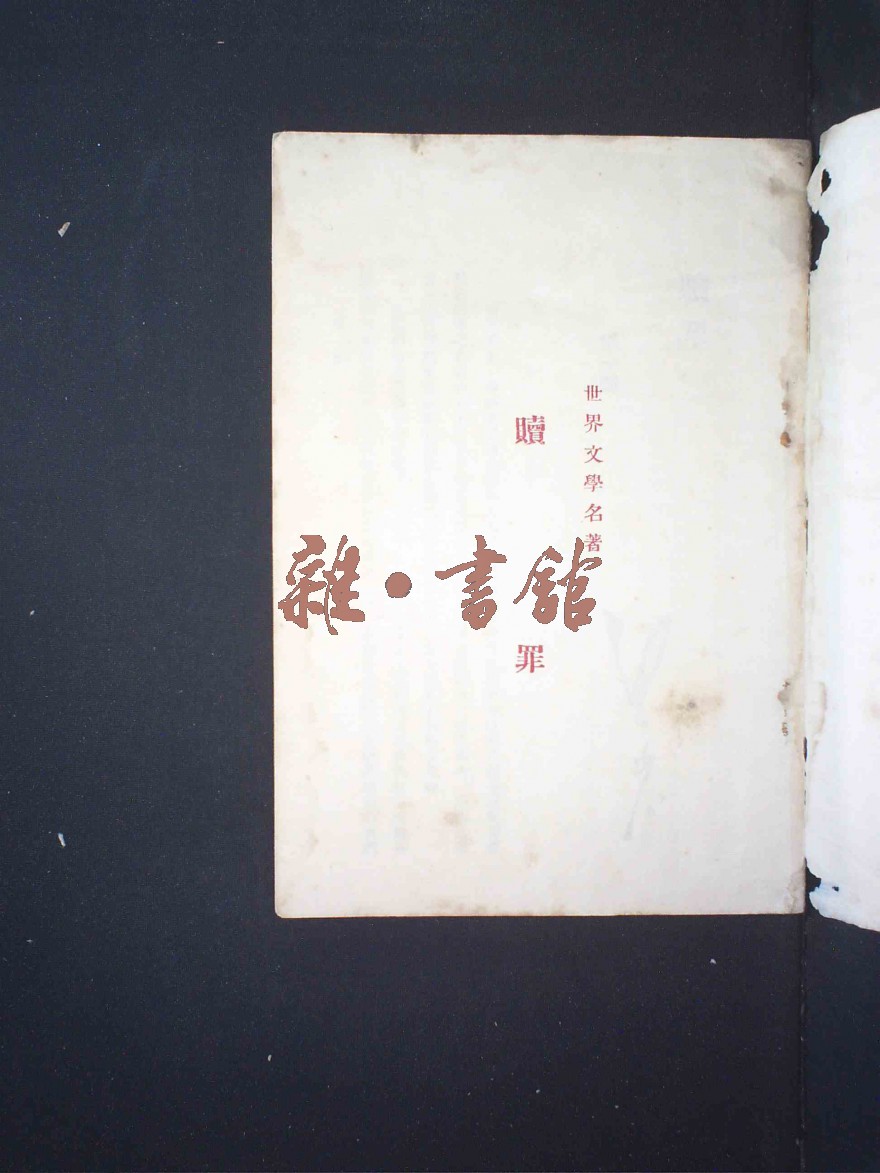 世界文學名著
贖罪
雜·書館